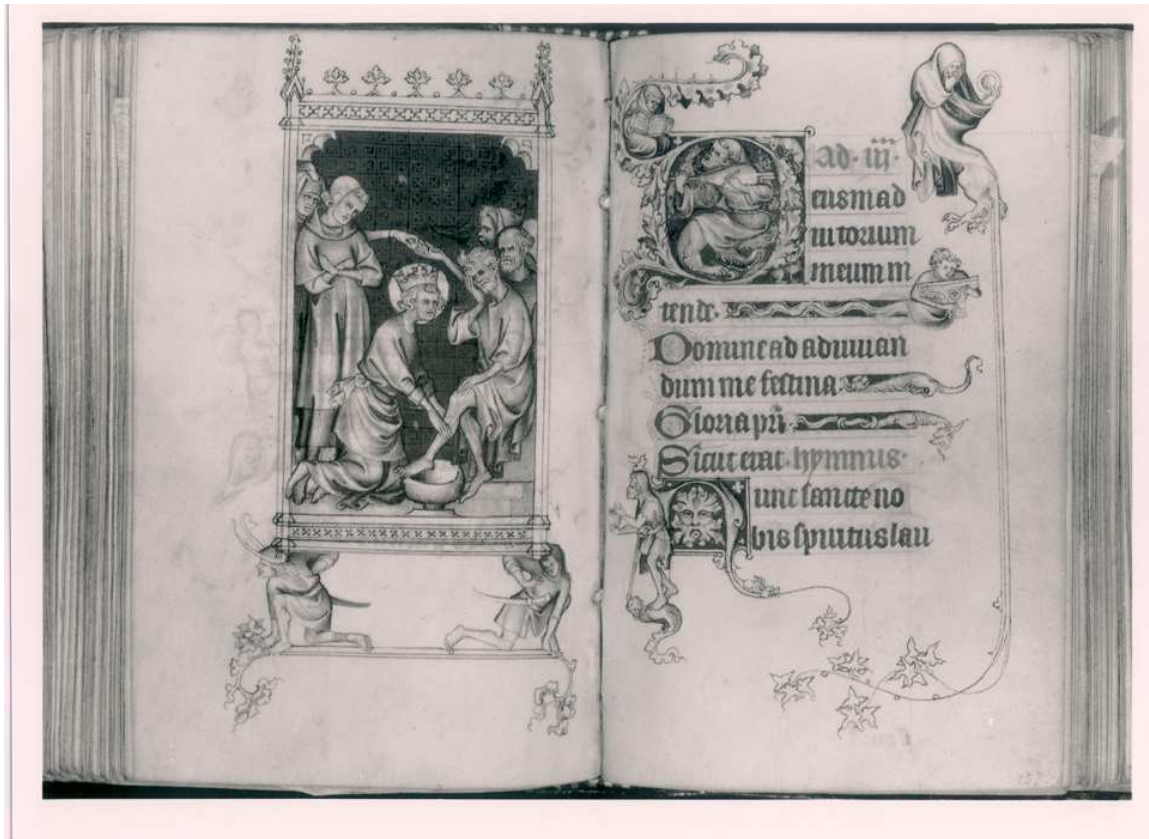 ad · iij ·
Deus in ad
iutorium
meum in
tende ·
Domine ad adiuuan
dum me festina
Gloria pri
Sicut erat · hymnus ·
Nunc sancte no
bis spiritus lau